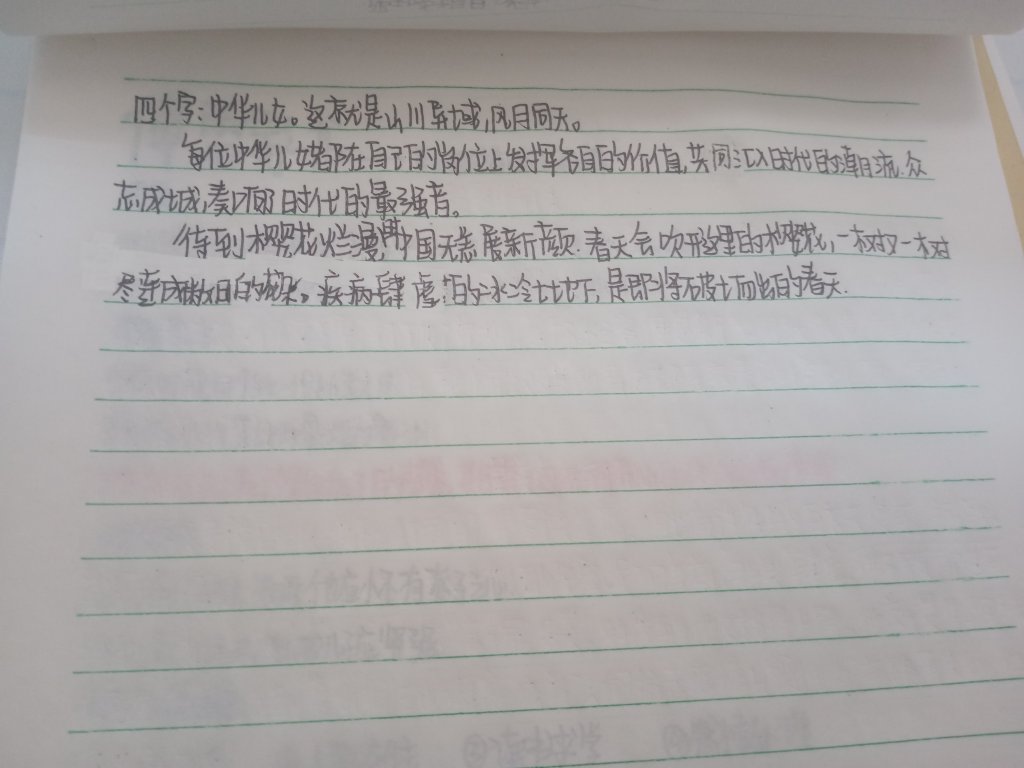 四个字：中华儿女。这就是山川异域，风月同天。
每位中华儿女都在自己的岗位上发挥各自的价值，共同汇入时代的潮流，众
志成城，奏响时代的最强音。
待到樱花烂漫，中国无恙展新颜。春天会吹醒这里的樱花，一树又一树
尽连成数日的。疾病肆虐的冰冷土地下，是即将破土而出的春天.